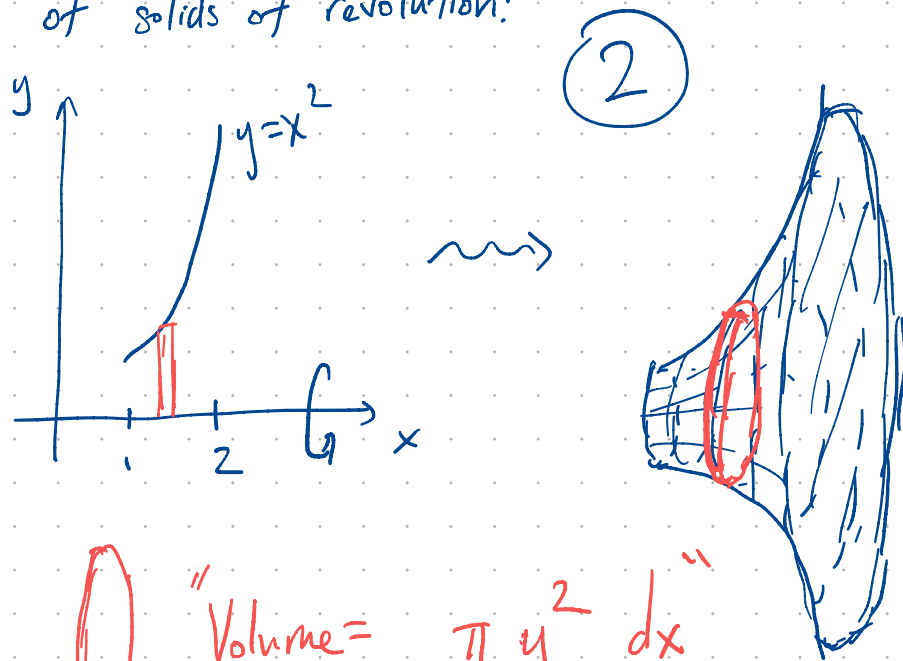 of solids of revolution.
2
y
y=x²
1
2
x
"Volume= π y² dx"